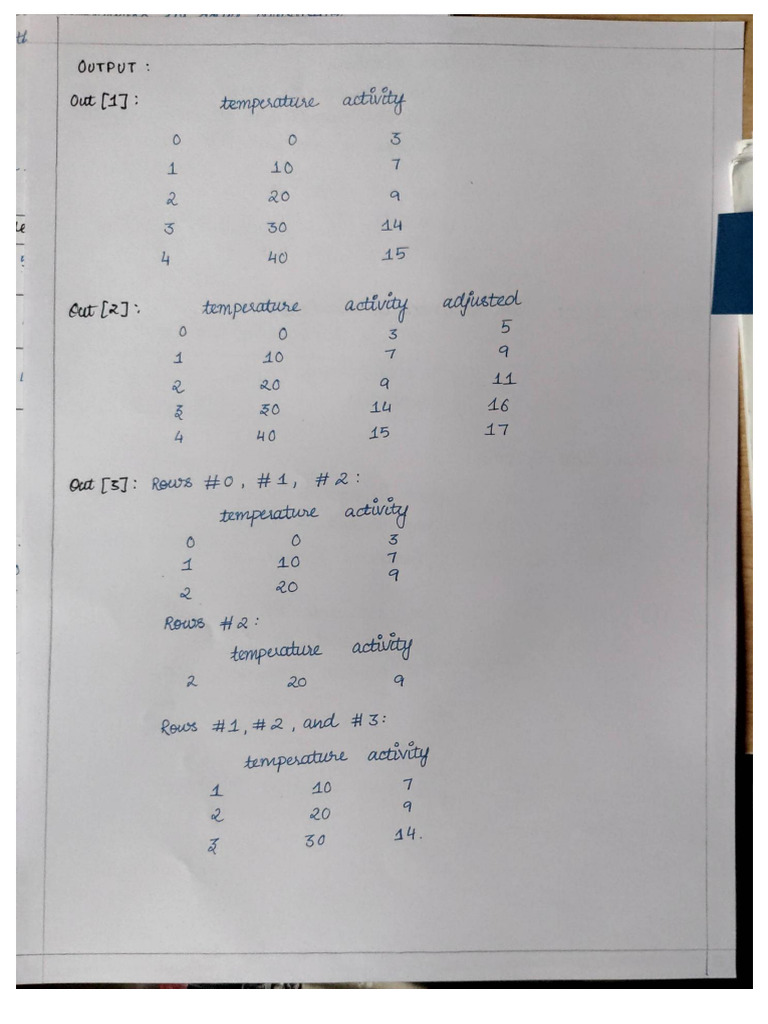 OUTPUT :
Out [1] : temperature activity
0 0 3
1 10 7
2 20 9
3 30 14
4 40 15
Out [2] : temperature activity adjusted
0 0 3 5
1 10 7 9
2 20 9 11
3 30 14 16
4 40 15 17
Out [3] : Rows #0, #1, #2 :
temperature activity
0 0 3
1 10 7
2 20 9
Rows #2 :
temperature activity
2 20 9
Rows #1, #2, and #3 :
temperature activity
1 10 7
2 20 9
3 30 14.